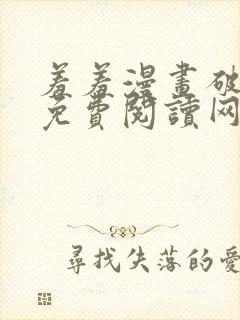 羞羞漫畫破
免費閱讀网
尋找失落的愛